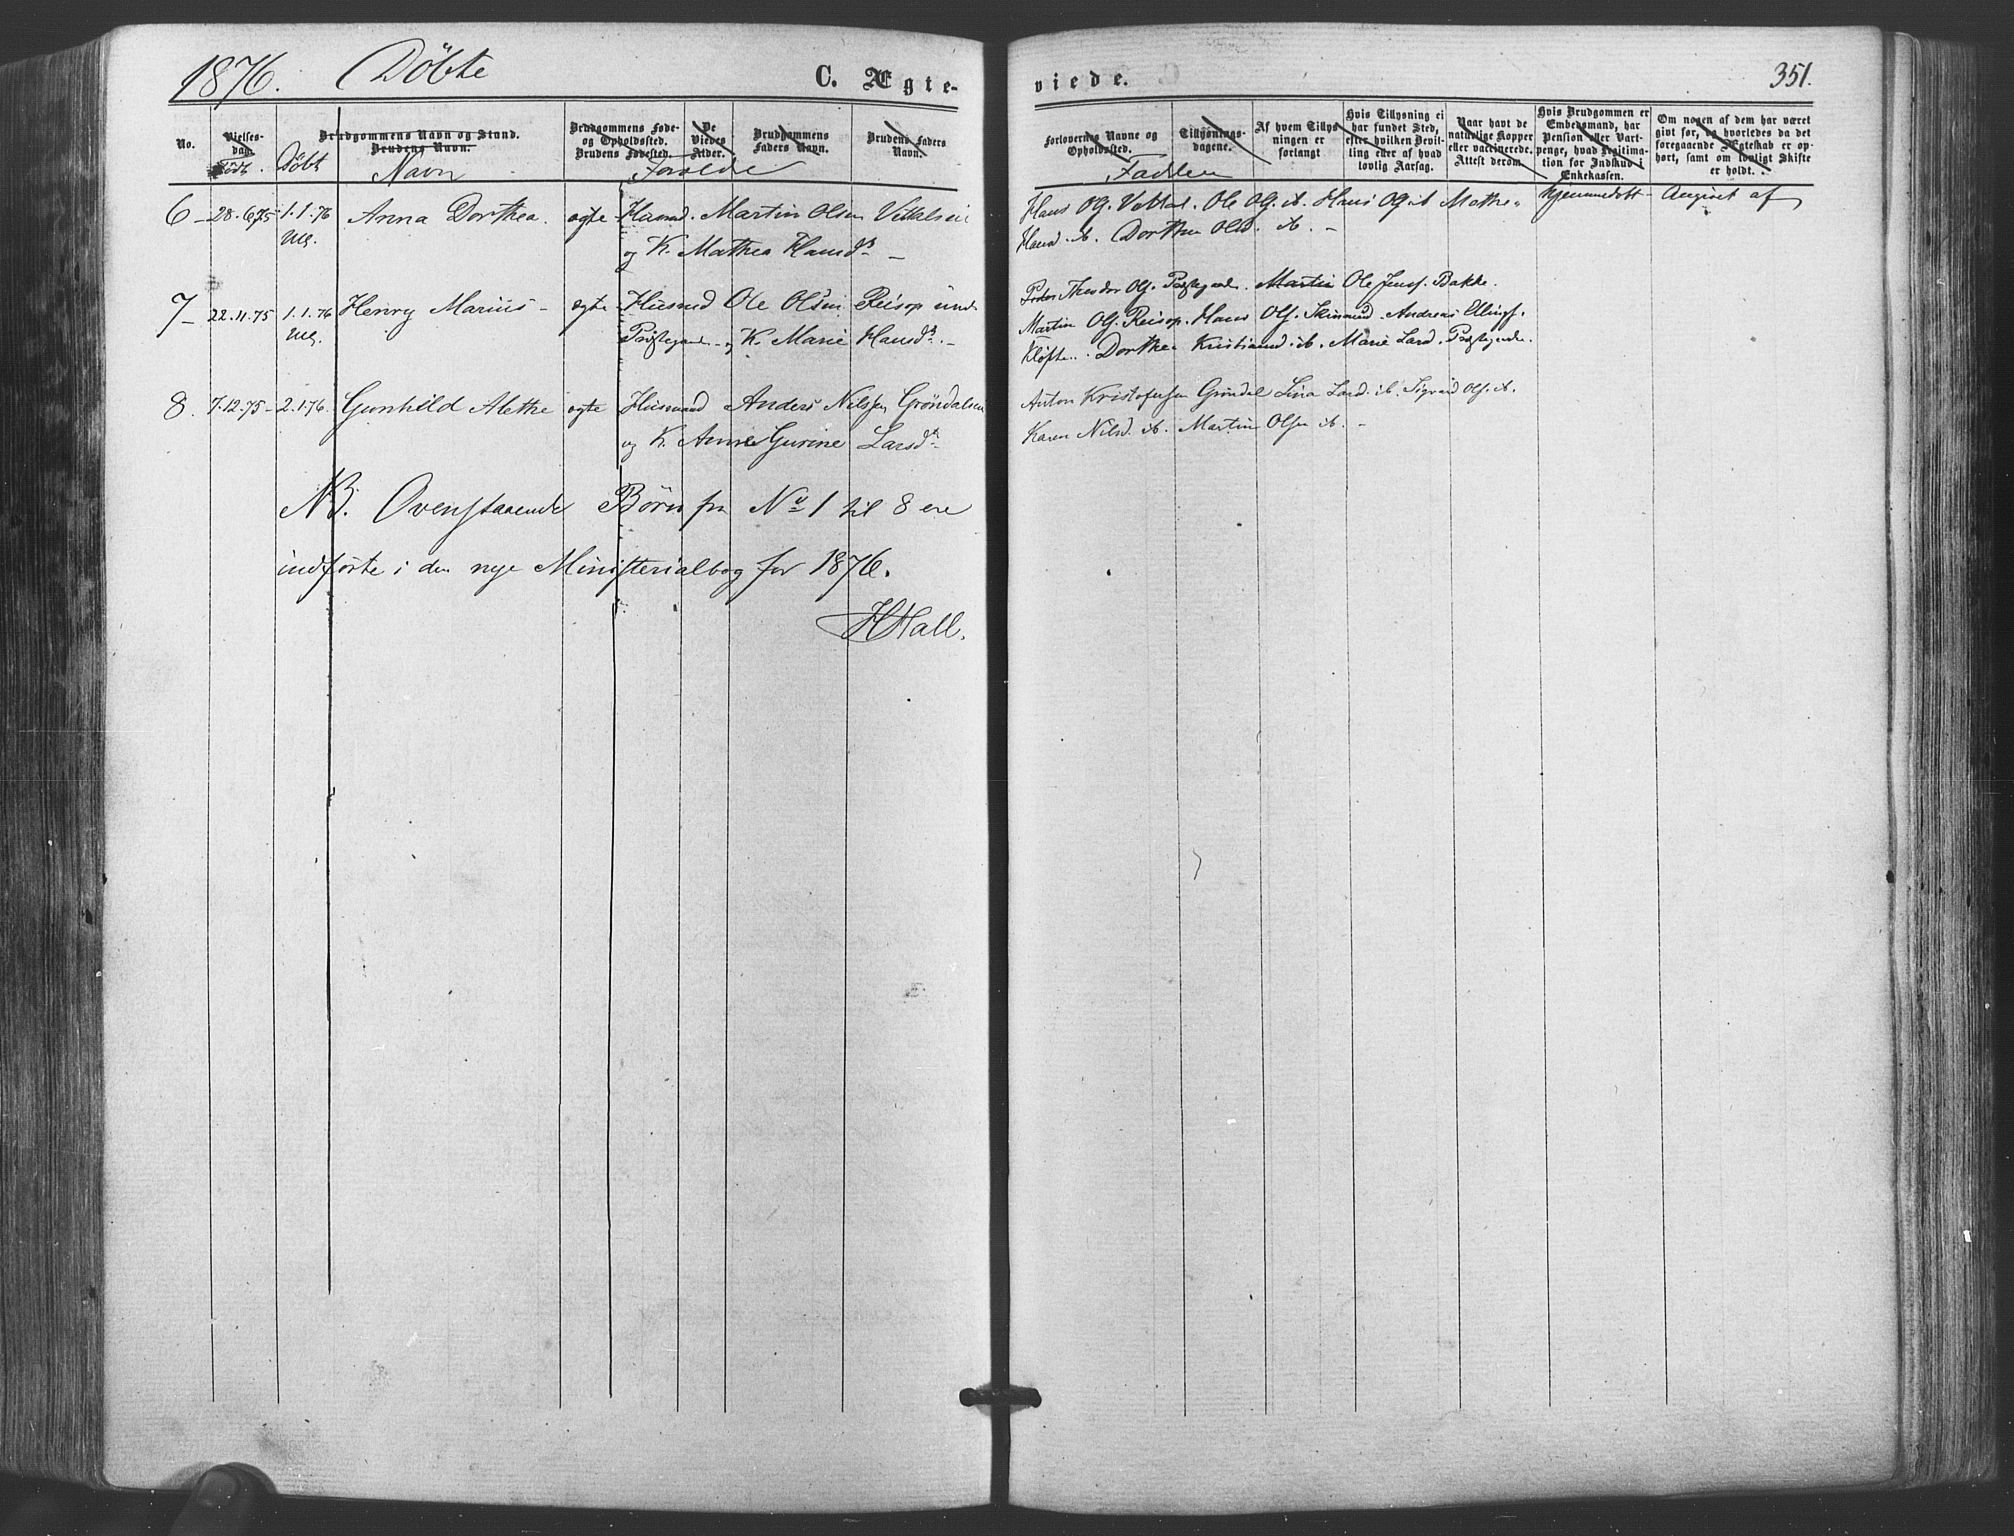 1876. Döbte C. Ægte-
No. Vielses-dag. Brudgommens Navn og Stand. Brudens Navn. Brudgommens Føde- og Opholdssted. Brudens Fødested. De Viedes Alder. Brudgommens Faders Navn. Brudens Faders Navn.
Födt. Döbt Navn Forældre
6 28.6.75 1.1.76 Anna Dorthea. ægte Husmd. Martin Olsen
og K. Mathea Hansdr
7 22.11.75 1.1.76 Henry Marius ægte Husmd Ole Olsen Reisop
Præstegard og K. Marie Hansdr.
8. 7.12.75 2.1.76. Gunhild Alethe ægte Husmand Anders Nilssen Gröndalen
og K. Anne Gurine Larsdr
NB. Ovenstaaende Börn fra No 1 til 8 ere
indförte i den nye Ministerialbog for 1876.
HHall.
viede. 351.
Forlovernes Navne og Opholdssted. Tillysnings-dagene. Af hvem Tillysningen er forlangt Hvis Tillysning ei har fundet Sted, efter hvilken Bevilling eller af hvad lovlig Aarsag. Naar havt de naturlige Kopper eller vaccinerede. Attest derom. Hvis Brudgommen er Embedsmand, har Pension eller Vartpenge, hvad Legitimation for Indskud i Enkekassen. Om nogen af dem har været givt før, og hvorledes da det foregaaende Ægteskab er ophørt, samt om lovligt Skifte er holdt.
Faddere
Hans Ols. Ole Ols. ib. Hans Ols ib Mathea hjemmedöbt Angivet af
Hansd. ib. Dorthea Olsd. ib.
Peder Theodor Ols. Præstegard. Martin Ole Jenss. Bakke.
Martin Ols. Reisop. Hans Ols. Andreas Ellingss.
Klöfte. Dorthea Kristiansd. ib. Marie Larsd. Præstegard.
Anton Kristofersen Gröndal Lina Larsd. ib. Sigvard Ols. ib.
Karen Nilsd. ib. Martin Olsen ib.